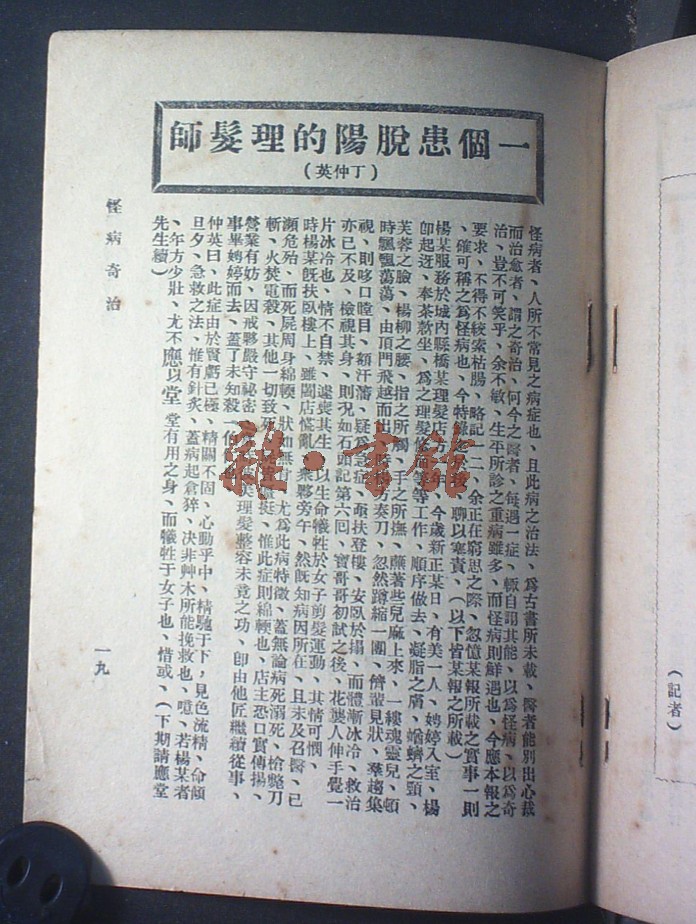 一個患脫陽的理髮師
(丁仲英)
怪病者、人所不常見之病症也、且此病之治法、爲古書所未載、醫者能別出心裁
而治愈者、謂之奇治、何今之醫者、每遇一症、輒自謂其能、以爲怪病、以爲奇
治、豈不可笑乎、余不敏、生平所診之重病雖多、而怪病則鮮遇也、今應本報之
要求、不得不絞索枯腸、略記一二、余正在窮思之際、忽憶某報所載之實事一則
、確可稱之爲怪病也、今特錄 聊以塞責、(以下皆某報之所載)
楊某服務於城內縣橋某理髮店 年、今歲新正某日、有美一人、娉婷入室、楊
卽起迓、奉茶欵坐、爲之理髮修 等工作、順序做去、凝脂之膚、蝤蠐之頸、
芙蓉之臉、楊柳之腰、指之所觸、手之所撫、 著些兒麻上來、一縷魂靈兒、頓
時飄飄蕩蕩、由頂門飛越而出、 方奏刀、忽然蹲縮一團、儕輩見狀、羣趨集
視、則哆口瞠目、額汗瀋、疑爲急症、 扶登樓、安臥於榻、而體漸冰冷、救治
亦已不及、檢視其身、則况如石頭記第六回、寶哥哥初試之後、花襲人伸手覺一
片冰冷也、情不自禁、遽喪其生、以生命犧牲於女子剪髮運動、其情可憫、
時楊某旣扶臥樓上、雖闔店慌亂、衆夥旁午、然旣知病因所在、且未及召醫、已
瀕危殆、而死屍周身綿輭、狀如無 尤爲此病特徵、蓋無論病死溺死、槍斃刀
斬、火焚電殺、其他一切致死、 挺、惟此症則綿輭也、店主恐口實傳揚、
營業有妨、因戒夥嚴守祕密、 美理髮整容未竟之功、卽由他匠繼續從事、
事畢娉婷而去、蓋了未知殺一伯
仲英曰、此症由於腎虧已極、精關不固、心動乎中、精馳于下、見色流精、命傾
旦夕、急救之法、惟有針炙、蓋病起倉猝、決非艸木所能挽救也、噫、若楊某者
、年方少壯、尤不應以堂堂有用之身、而犧牲于女子也、惜哉、(下期請應堂
先生續)
怪病奇治
一九
(記者)
雜·書館